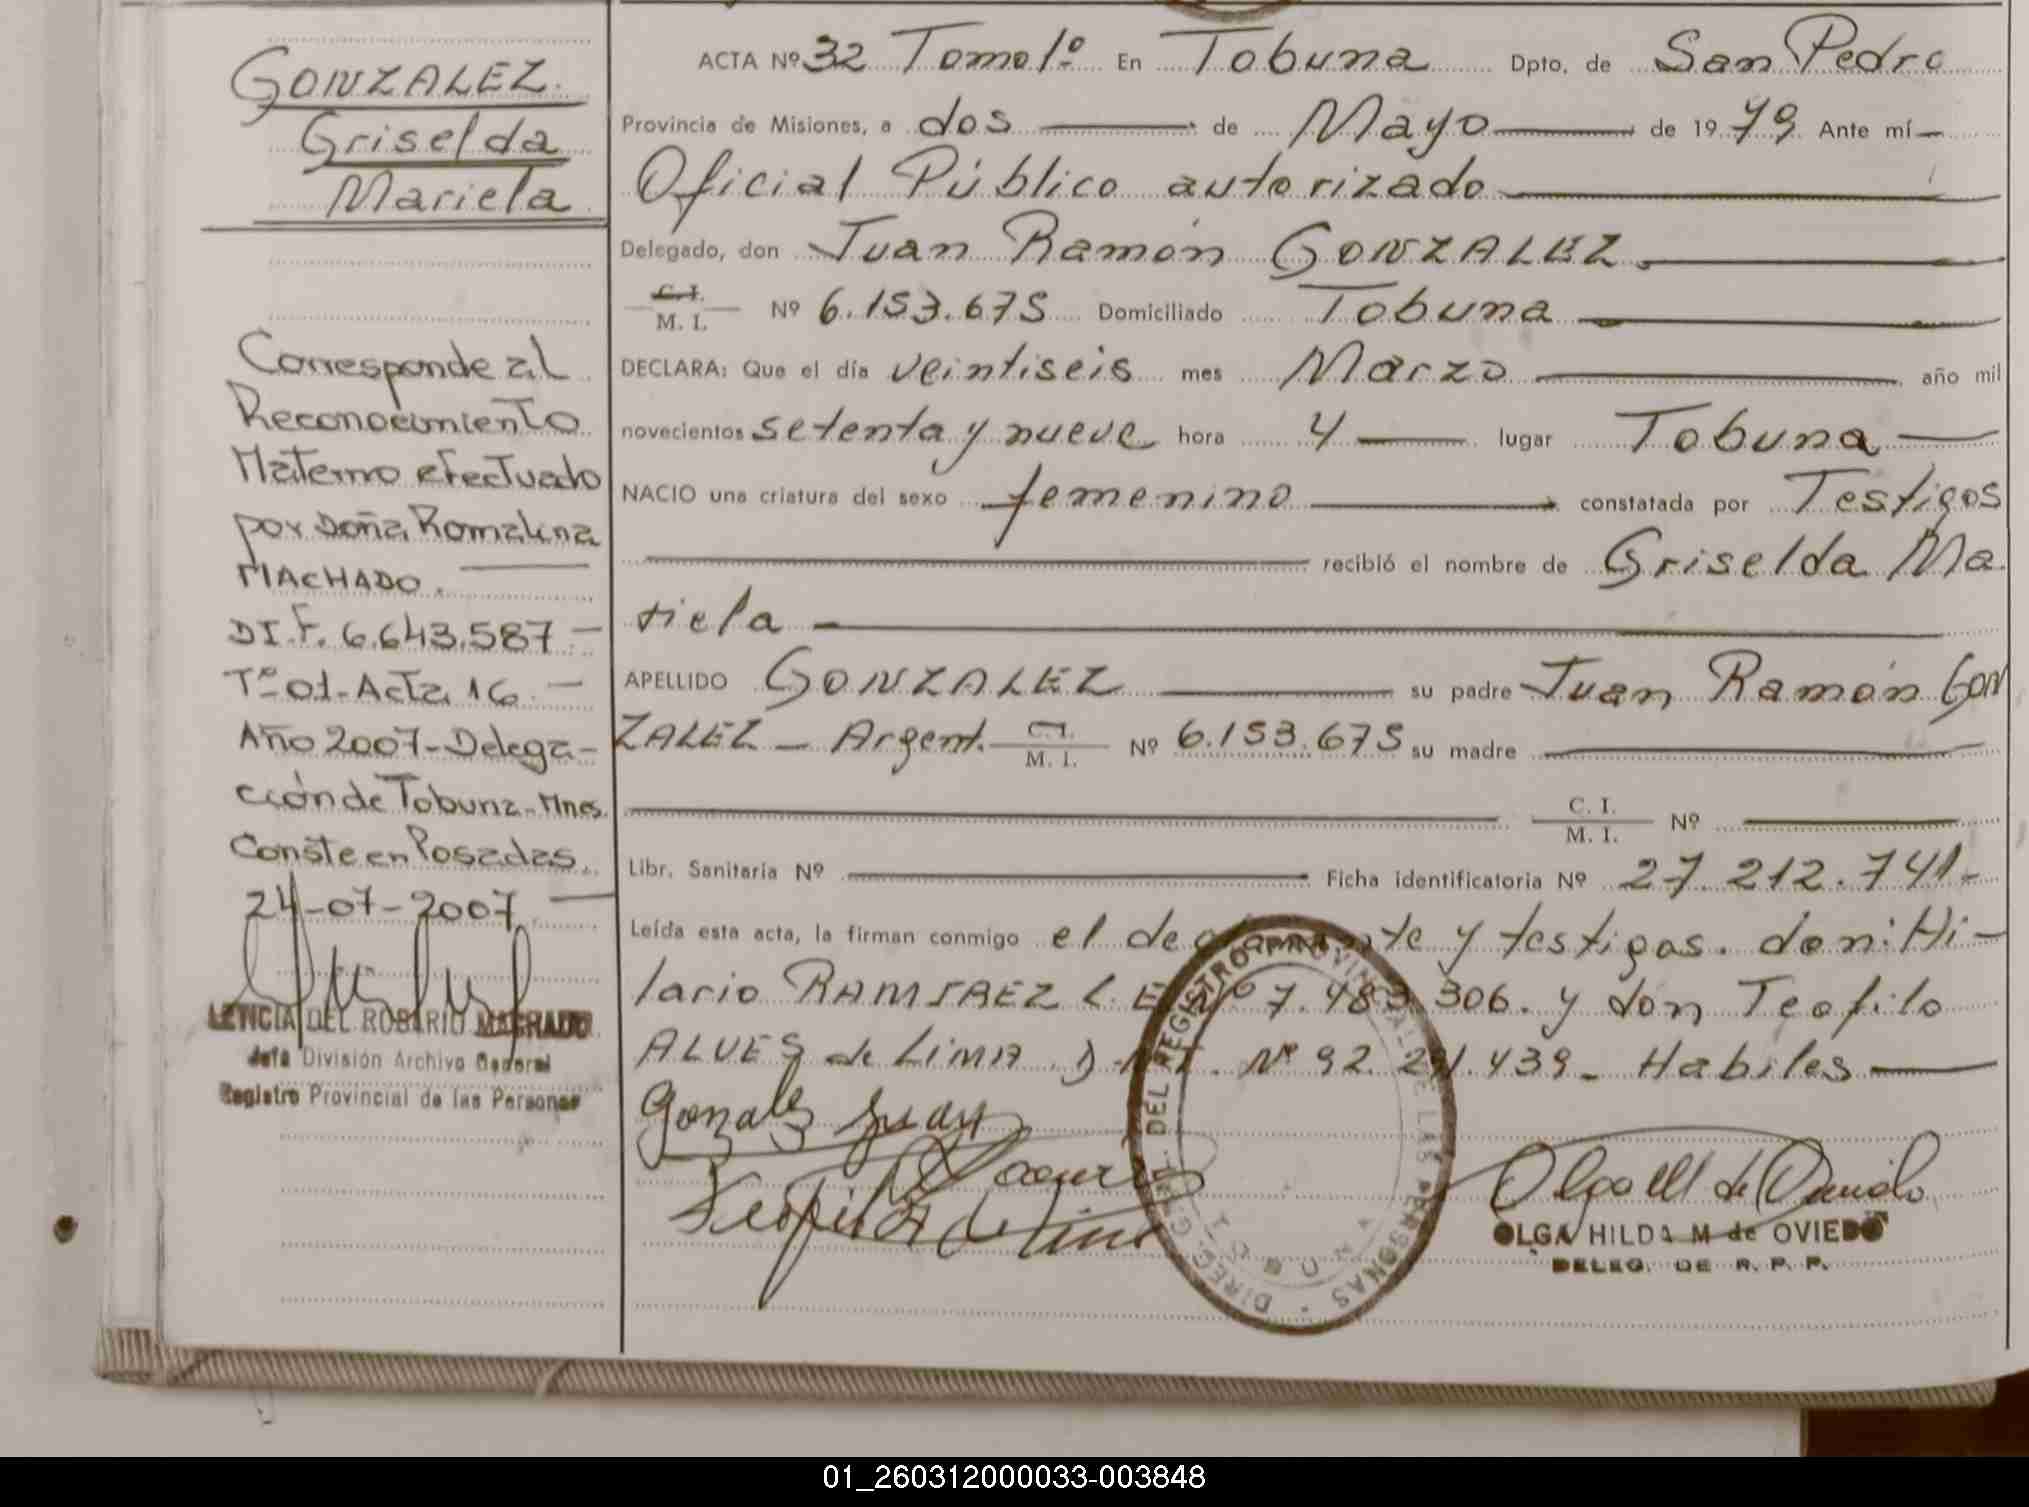 GONZALEZ.
Griselda
Mariela
Corresponde al
Reconocimiento
Materno efectuado
por Doña Romalina
MACHADO.
DI.F. 6.643.587 -
Tº 01 - Acta 16 -
Año 2007 - Delega-
ción de Tobuna - Mnes.
Conste en Posadas.
24-07-2007
LETICIA DEL ROSARIO
Jefa División Archivo General
Registro Provincial de las Personas
ACTA Nº 32 Tomo 1º En Tobuna Dpto. de San Pedro
Provincia de Misiones, a dos de Mayo de 1979 Ante mí
Oficial Público autorizado
Delegado, don Juan Ramón GONZALEZ.
C. I. M. I. Nº 6.153.675 Domiciliado Tobuna
DECLARA: Que el día veintiseis mes Marzo año mil
novecientos setenta y nueve hora 4 lugar Tobuna
NACIO una criatura del sexo femenino constatada por Testigos
recibió el nombre de Griselda Ma
riela
APELLIDO GONZALEZ su padre Juan Ramón Gon
ZALEZ - Argent. C. I. M. I. Nº 6.153.675 su madre
C. I. M. I. Nº
Libr. Sanitaria Nº Ficha identificatoria Nº 27.212.741-
Leída esta acta, la firman conmigo el declarante y testigos. don: Hi-
lario RAMIREZ L.E. Nº 7.483.306. y don Teofilo
ALVES de LIMA D.N.I. Nº 92.291.439 - Habiles
Gonzalez Juan
Teofilo A de Lima
Olga M de Oviedo
OLGA HILDA M de OVIEDO
DELEG. DE R. P. P.
DIREC. GRAL. DEL REGISTRO PROVINCIAL DE LAS PERSONAS
TOBUNA
01_260312000033-003848